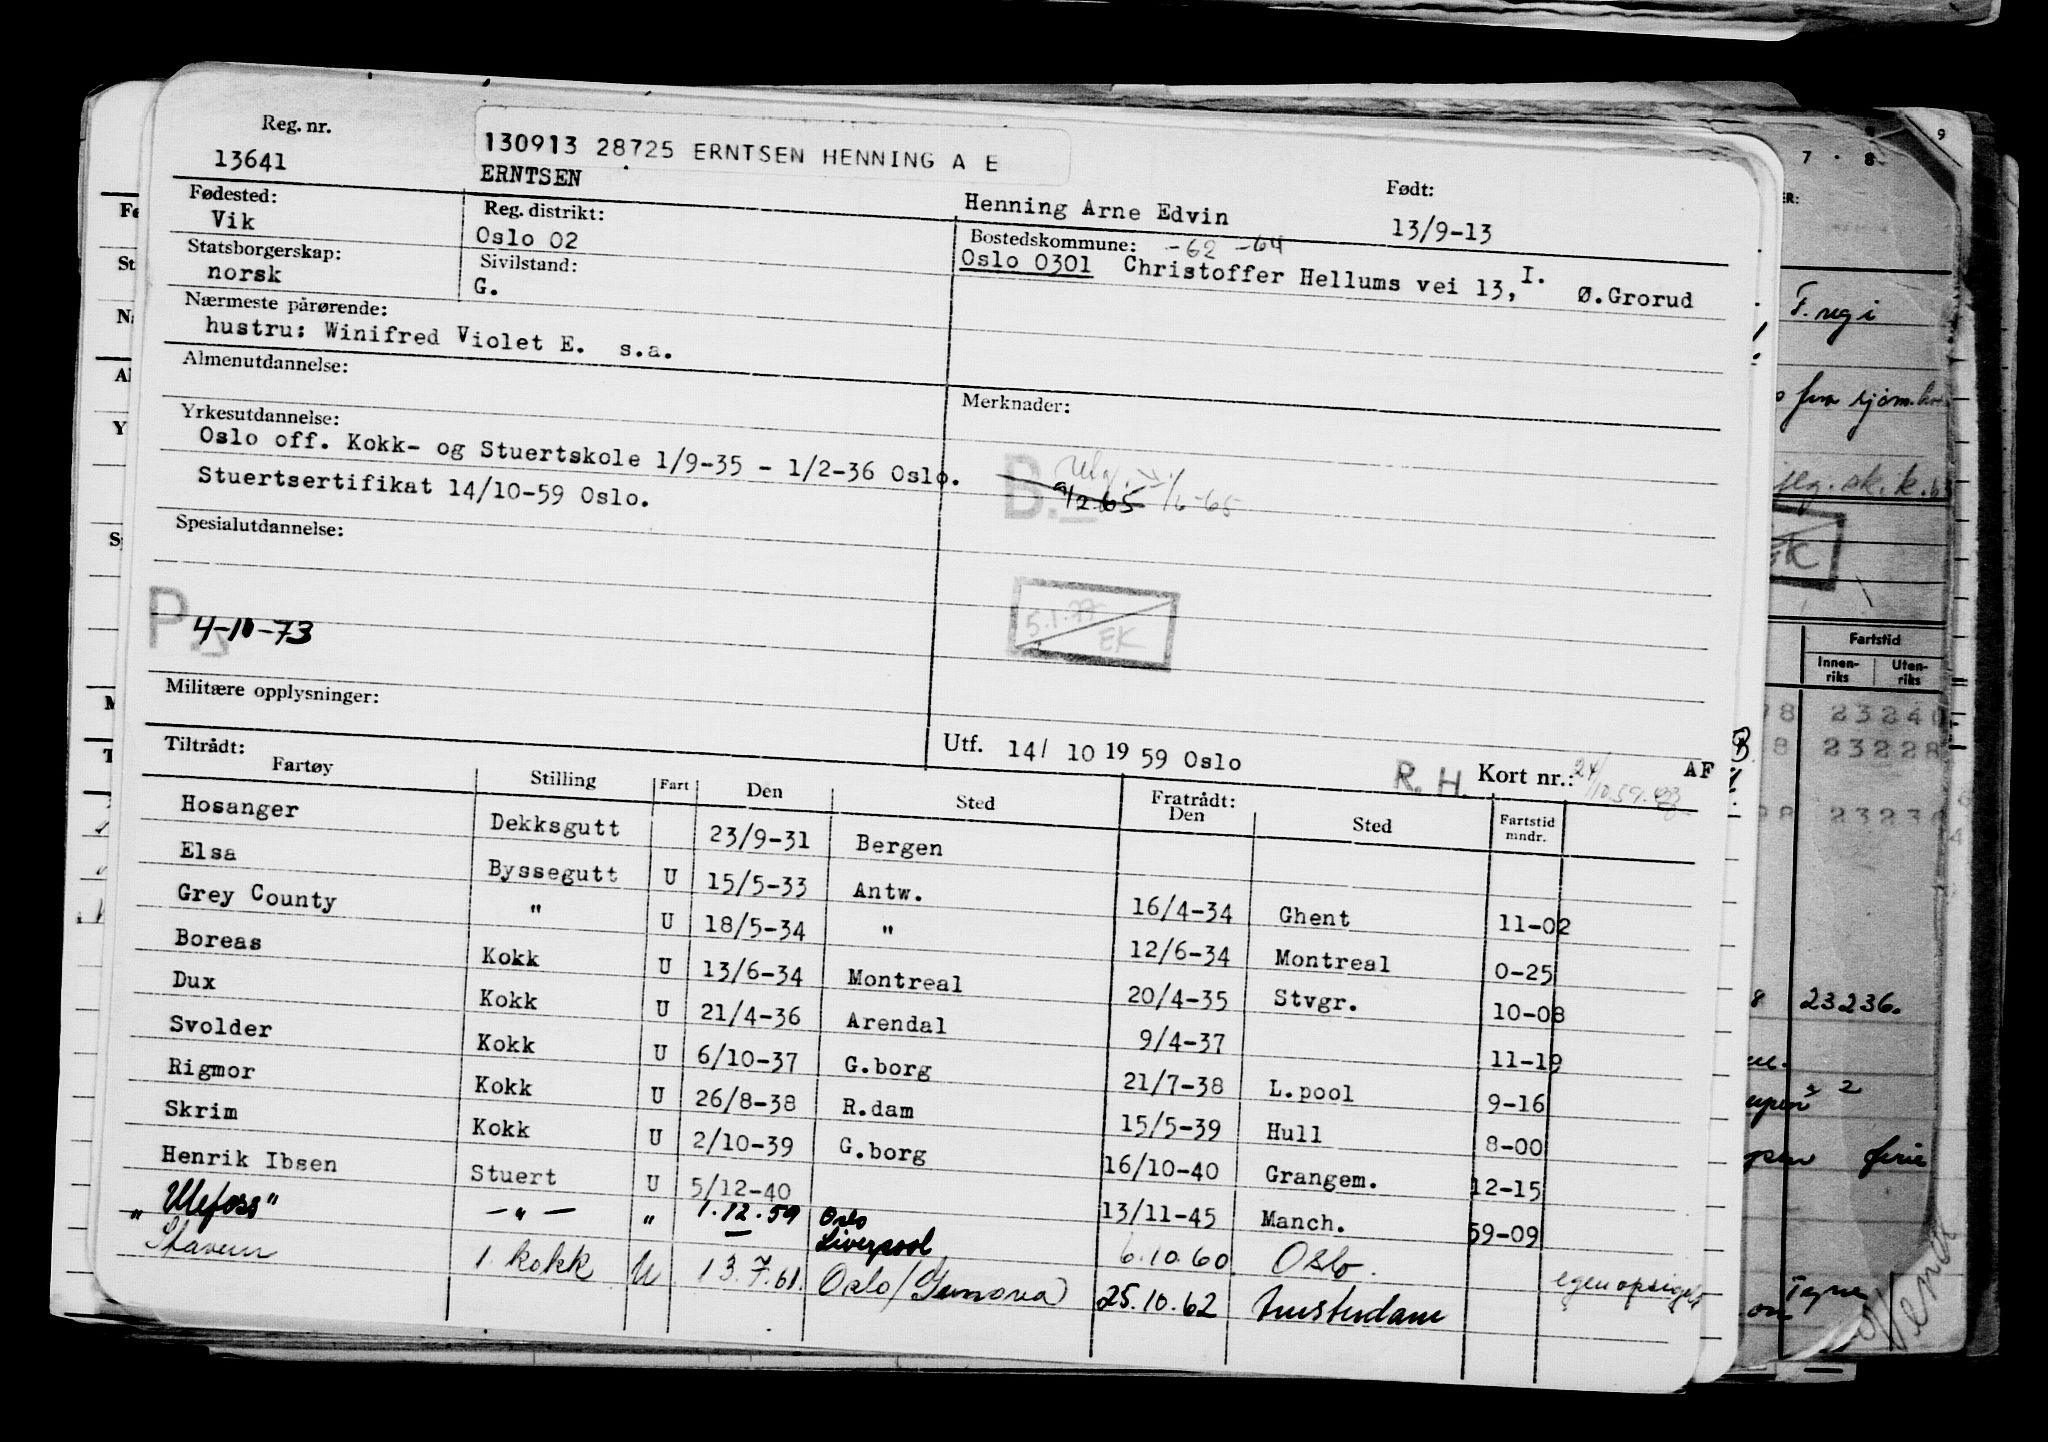 Reg. nr.
13641
130913 28725 ERNTSEN HENNING A E
ERNTSEN
Henning Arne Edvin
Født:
13/9-13
Fødested:
Vik
Reg. distrikt:
Oslo 02
Bostedskommune: -62 -64
Oslo 0301 Christoffer Hellums vei 13, I. Ø.Grorud
Statsborgerskap:
norsk
Sivilstand:
G.
Nærmeste pårørende:
hustru: Winifred Violet E. s.a.
Almenutdannelse:
Merknader:
Yrkesutdannelse:
Oslo off. Kokk- og Stuertskole 1/9-35 - 1/2-36 Oslo.
Stuertsertifikat 14/10-59 Oslo.
B.
9/2-65 1/6-65
Spesialutdannelse:
P. 4-10-73
5.1.77
EK
Militære opplysninger:
Utf. 14/ 10 19 59 Oslo
R. H. Kort nr.: AF
Tiltrådt:
Fartøy Stilling Fart Den Sted Fratrådt: Den Sted Fartstid mndr.
Hosanger Dekksgutt 23/9-31 Bergen
Elsa Byssegutt U 15/5-33 Antw. 16/4-34 Ghent 11-02
Grey County " U 18/5-34 " 12/6-34 Montreal 0-25
Boreas Kokk U 13/6-34 Montreal 20/4-35 Stvgr. 10-08
Dux Kokk U 21/4-36 Arendal 9/4-37 11-19
Svolder Kokk U 6/10-37 G.borg 21/7-38 L.pool 9-16
Rigmor Kokk U 26/8-38 R.dam 15/5-39 Hull 8-00
Skrim Kokk U 2/10-39 G.borg 16/10-40 Grangem. 12-15
Henrik Ibsen Stuert U 5/12-40 13/11-45 Manch. 59-09
"Ulefoss" - " - " 1.12.59 Oslo Liverpool 6.10.60 Oslo.
Stavern 1. kokk U 13.7.61. Oslo/Genova 25.10.62 Amsterdam egen opsigels
9
7 . 8
F. reg i
EK
Fartstid
Innen-
riks
Uten-
riks
23240
23228
23236
23236.
ferie